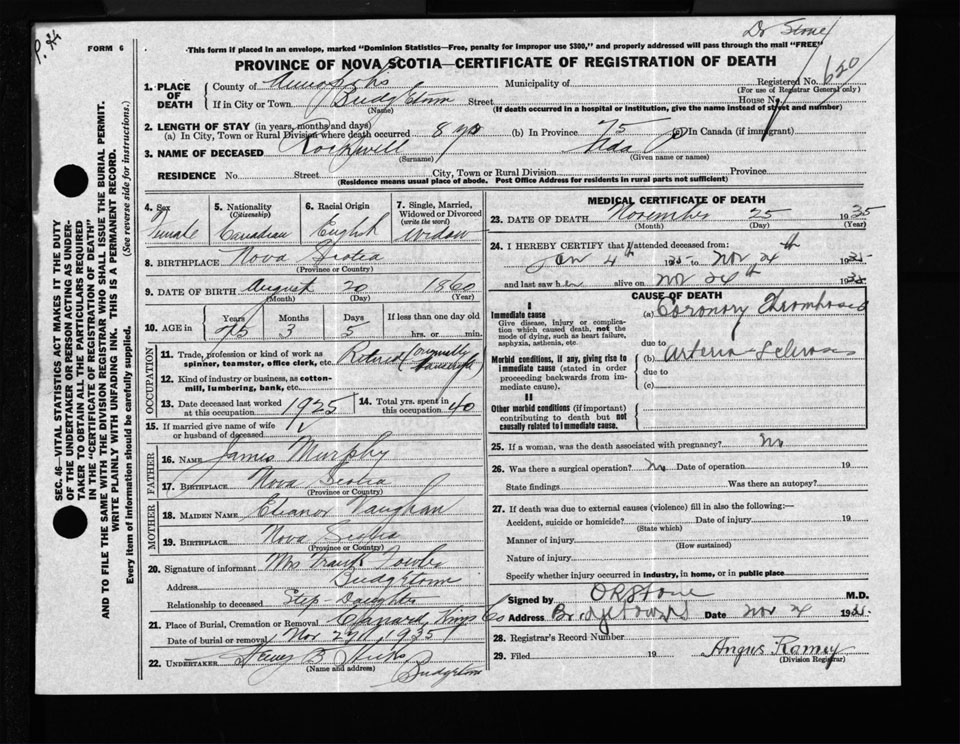 Dr Stone
P. H.
FORM 6
This form if placed in an envelope, marked "Dominion Statistics—Free, penalty for improper use $300," and properly addressed will pass through the mail "FREE"
PROVINCE OF NOVA SCOTIA—CERTIFICATE OF REGISTRATION OF DEATH
SEC. 46—VITAL STATISTICS ACT MAKES IT THE DUTY
OF THE UNDERTAKER OR PERSON ACTING AS UNDER-
TAKER TO OBTAIN ALL THE PARTICULARS REQUIRED
IN THE "CERTIFICATE OF REGISTRATION OF DEATH"
AND TO FILE THE SAME WITH THE DIVISION REGISTRAR WHO SHALL ISSUE THE BURIAL PERMIT.
WRITE PLAINLY WITH UNFADING INK. THIS IS A PERMANENT RECORD.
Every item of information should be carefully supplied. (See reverse side for instructions.)
1. PLACE OF DEATH County of Annapolis Municipality of Registered No. 620
(For use of Registrar General only)
If in City or Town Bridgetown Street House No.
(Name) (If death occurred in a hospital or institution, give the name instead of street and number)
2. LENGTH OF STAY (in years, months and days)
(a) In City, Town or Rural Division where death occurred 8 yrs (b) In Province 75 (c) In Canada (if immigrant)
3. NAME OF DECEASED Rockwell Ada J
(Surname) (Given name or names)
RESIDENCE No. Street City, Town or Rural Division Province
(Residence means usual place of abode. Post Office Address for residents in rural parts not sufficient)
4. Sex Female
5. Nationality (Citizenship) Canadian
6. Racial Origin English
7. Single, Married, Widowed or Divorced (write the word) Widow
8. BIRTHPLACE Nova Scotia
(Province or Country)
9. DATE OF BIRTH August 20 1860
(Month) (Day) (Year)
10. AGE in Years 75 Months 3 Days 5 If less than one day old hrs. or min.
OCCUPATION
11. Trade, profession or kind of work as spinner, teamster, office clerk, etc. Retired (Formerly Housewife)
12. Kind of industry or business, as cotton-mill, lumbering, bank, etc.
13. Date deceased last worked at this occupation 1925 14. Total yrs. spent in this occupation 40
15. If married give name of wife or husband of deceased
FATHER
16. NAME James Murphy
17. BIRTHPLACE Nova Scotia
(Province or Country)
MOTHER
18. MAIDEN NAME Eleanor Vaughan
19. BIRTHPLACE Nova Scotia
(Province or Country)
20. Signature of informant Mrs Frank Fowler
Address Bridgetown
Relationship to deceased Step-Daughter
21. Place of Burial, Cremation or Removal Canard, Kings Co
Date of burial or removal Nov 27th 1935
22. UNDERTAKER B Hicks
(Name and address) Bridgetown
MEDICAL CERTIFICATE OF DEATH
23. DATE OF DEATH November 25 1935
(Month) (Day) (Year)
24. I HEREBY CERTIFY that I attended deceased from:
Jan 4th 1935 to Nov 24th 1935
and last saw her alive on Nov 24th 1935
CAUSE OF DEATH
I
Immediate cause
Give disease, injury or complication which caused death, not the mode of dying, such as heart failure, asphyxia, asthenia, etc.
(a) Coronary Thrombosis
due to
Morbid conditions, if any, giving rise to immediate cause (stated in order proceeding backwards from immediate cause).
(b) Arterio Sclerosis
due to
(c)
II
Other morbid conditions (if important) contributing to death but not causally related to immediate cause.
25. If a woman, was the death associated with pregnancy? No
26. Was there a surgical operation? No Date of operation 19
State findings Was there an autopsy?
27. If death was due to external causes (violence) fill in also the following:—
Accident, suicide or homicide? Date of injury 19
(State which)
Manner of injury
(How sustained)
Nature of injury
Specify whether injury occurred in industry, in home, or in public place
Signed by O R Stone M.D.
Address Bridgetown N S Date Nov 24 1935
28. Registrar's Record Number
29. Filed 19 Angus Ramey
(Division Registrar)